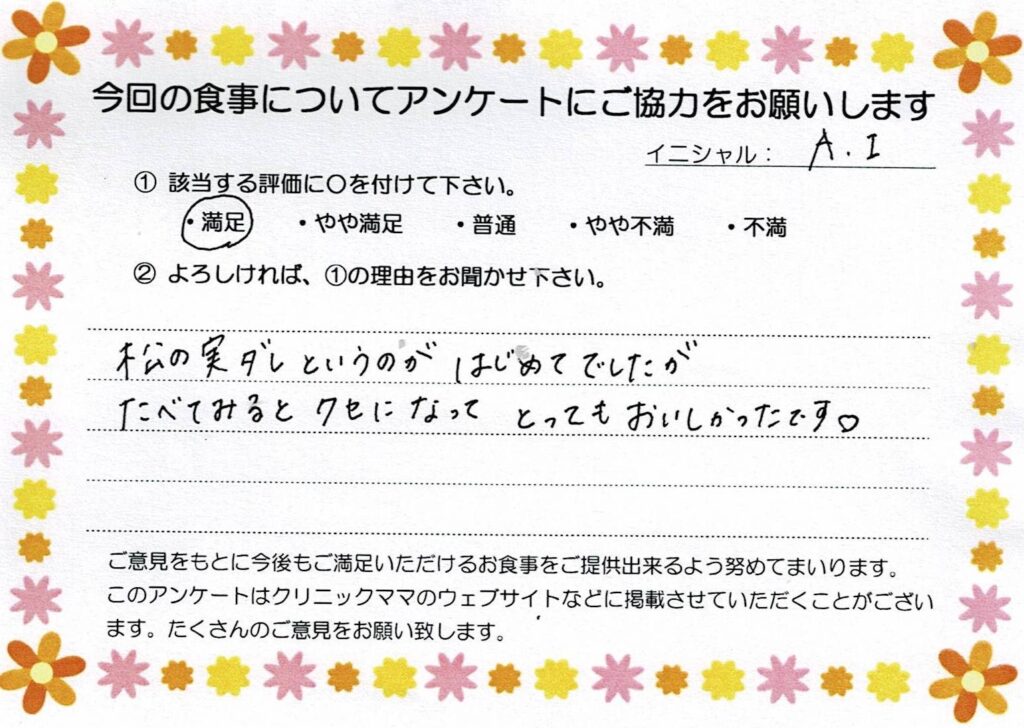 今回の食事についてアンケートにご協力をお願いします
イニシャル： A.I
① 該当する評価に〇を付けて下さい。
・満足 ・やや満足 ・普通 ・やや不満 ・不満
② よろしければ、①の理由をお聞かせ下さい。
松の実ダレというのが はじめてでしたが
たべてみると クセになって とってもおいしかったです♡
ご意見をもとに今後もご満足いただけるお食事をご提供出来るよう努めてまいります。
このアンケートはクリニックママのウェブサイトなどに掲載させていただくことがござい
ます。たくさんのご意見をお願い致します。